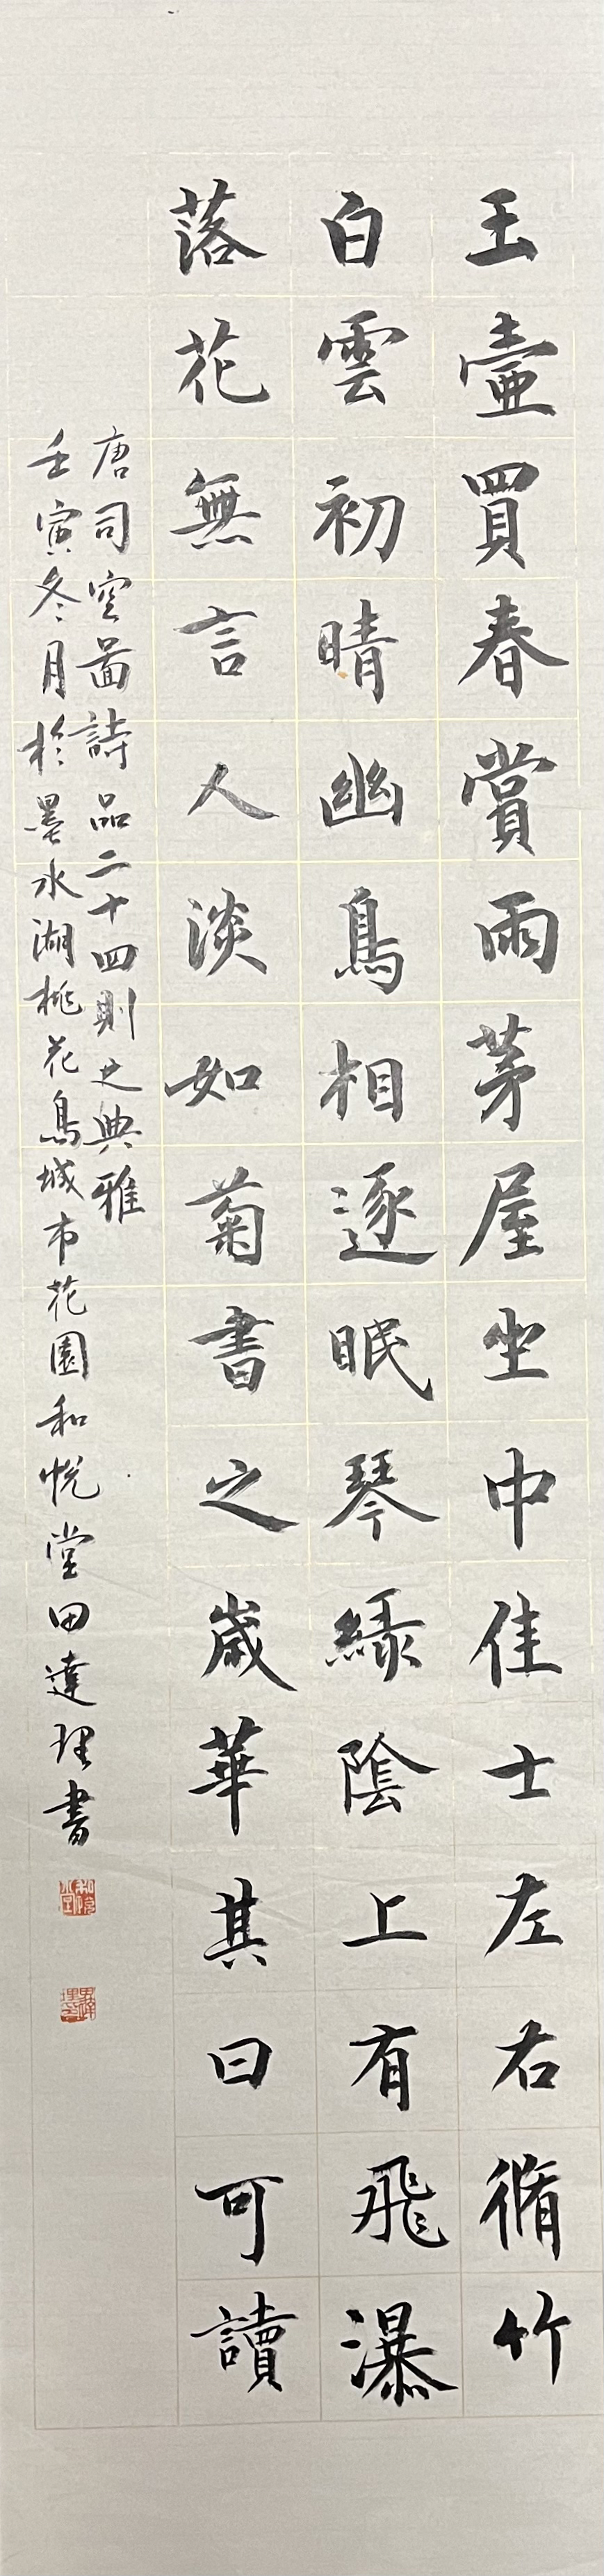 玉壺買春賞雨茅屋坐中佳士左右脩竹
白雲初晴幽鳥相逐眠琴綠陰上有飛瀑
落花無言人淡如菊書之歲華其曰可讀
唐司空圖詩品二十四則之典雅
壬寅冬月於墨水湖桃花鳥城市花園和悅堂田達理書